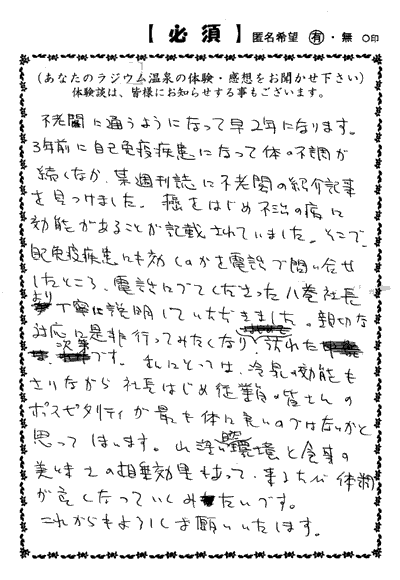 【必須】 匿名希望 有・無 ○印
(あなたのラジウム温泉の体験・感想をお聞かせ下さい)
体験談は、皆様にお知らせする事もございます。
不老閣に通うようになって早2年になります。
3年前に自己免疫疾患になって体の不調が
続くなか、某週刊誌に不老閣の紹介記事
を見つけました。癌をはじめ不治の病に
効能があることが記載されていました。そこで、
自己免疫疾患にも効くのかを電話で問い合せ
したところ、電話にでてくださった八巻社長
より丁寧に説明していただきました。親切な
対応に是非行ってみたくなり、訪れた
次第です。私にとっては、冷泉の効能も
さりながら社長はじめ従業員の皆さんの
ホスピタリティが最も体に良いのではないかと
思っています。山深い自然環境と食事の
美味さの相乗効果もあって、来るたび体調
が良くなっていくみたいです。
これからもよろしくお願いいたします。